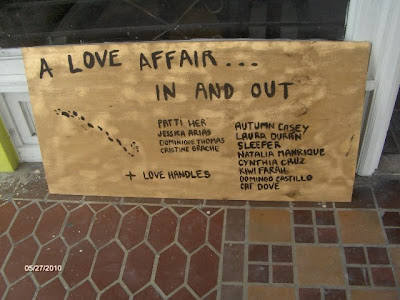 A LOVE AFFAIR...
IN AND OUT
PATTI HER
JESSIKA ARIAS
DOMINIQUE THOMAS
CRISTINE BRACHE
+ LOVE HANDLES
AUTUMN CASEY
LAURA DURAN
SLEEPER
NATALIA MANRIQUE
CYNTHIA CRUZ
KIWI FARAH
DOMINGO CASTILLO
CAT DOVE
05/27/2010